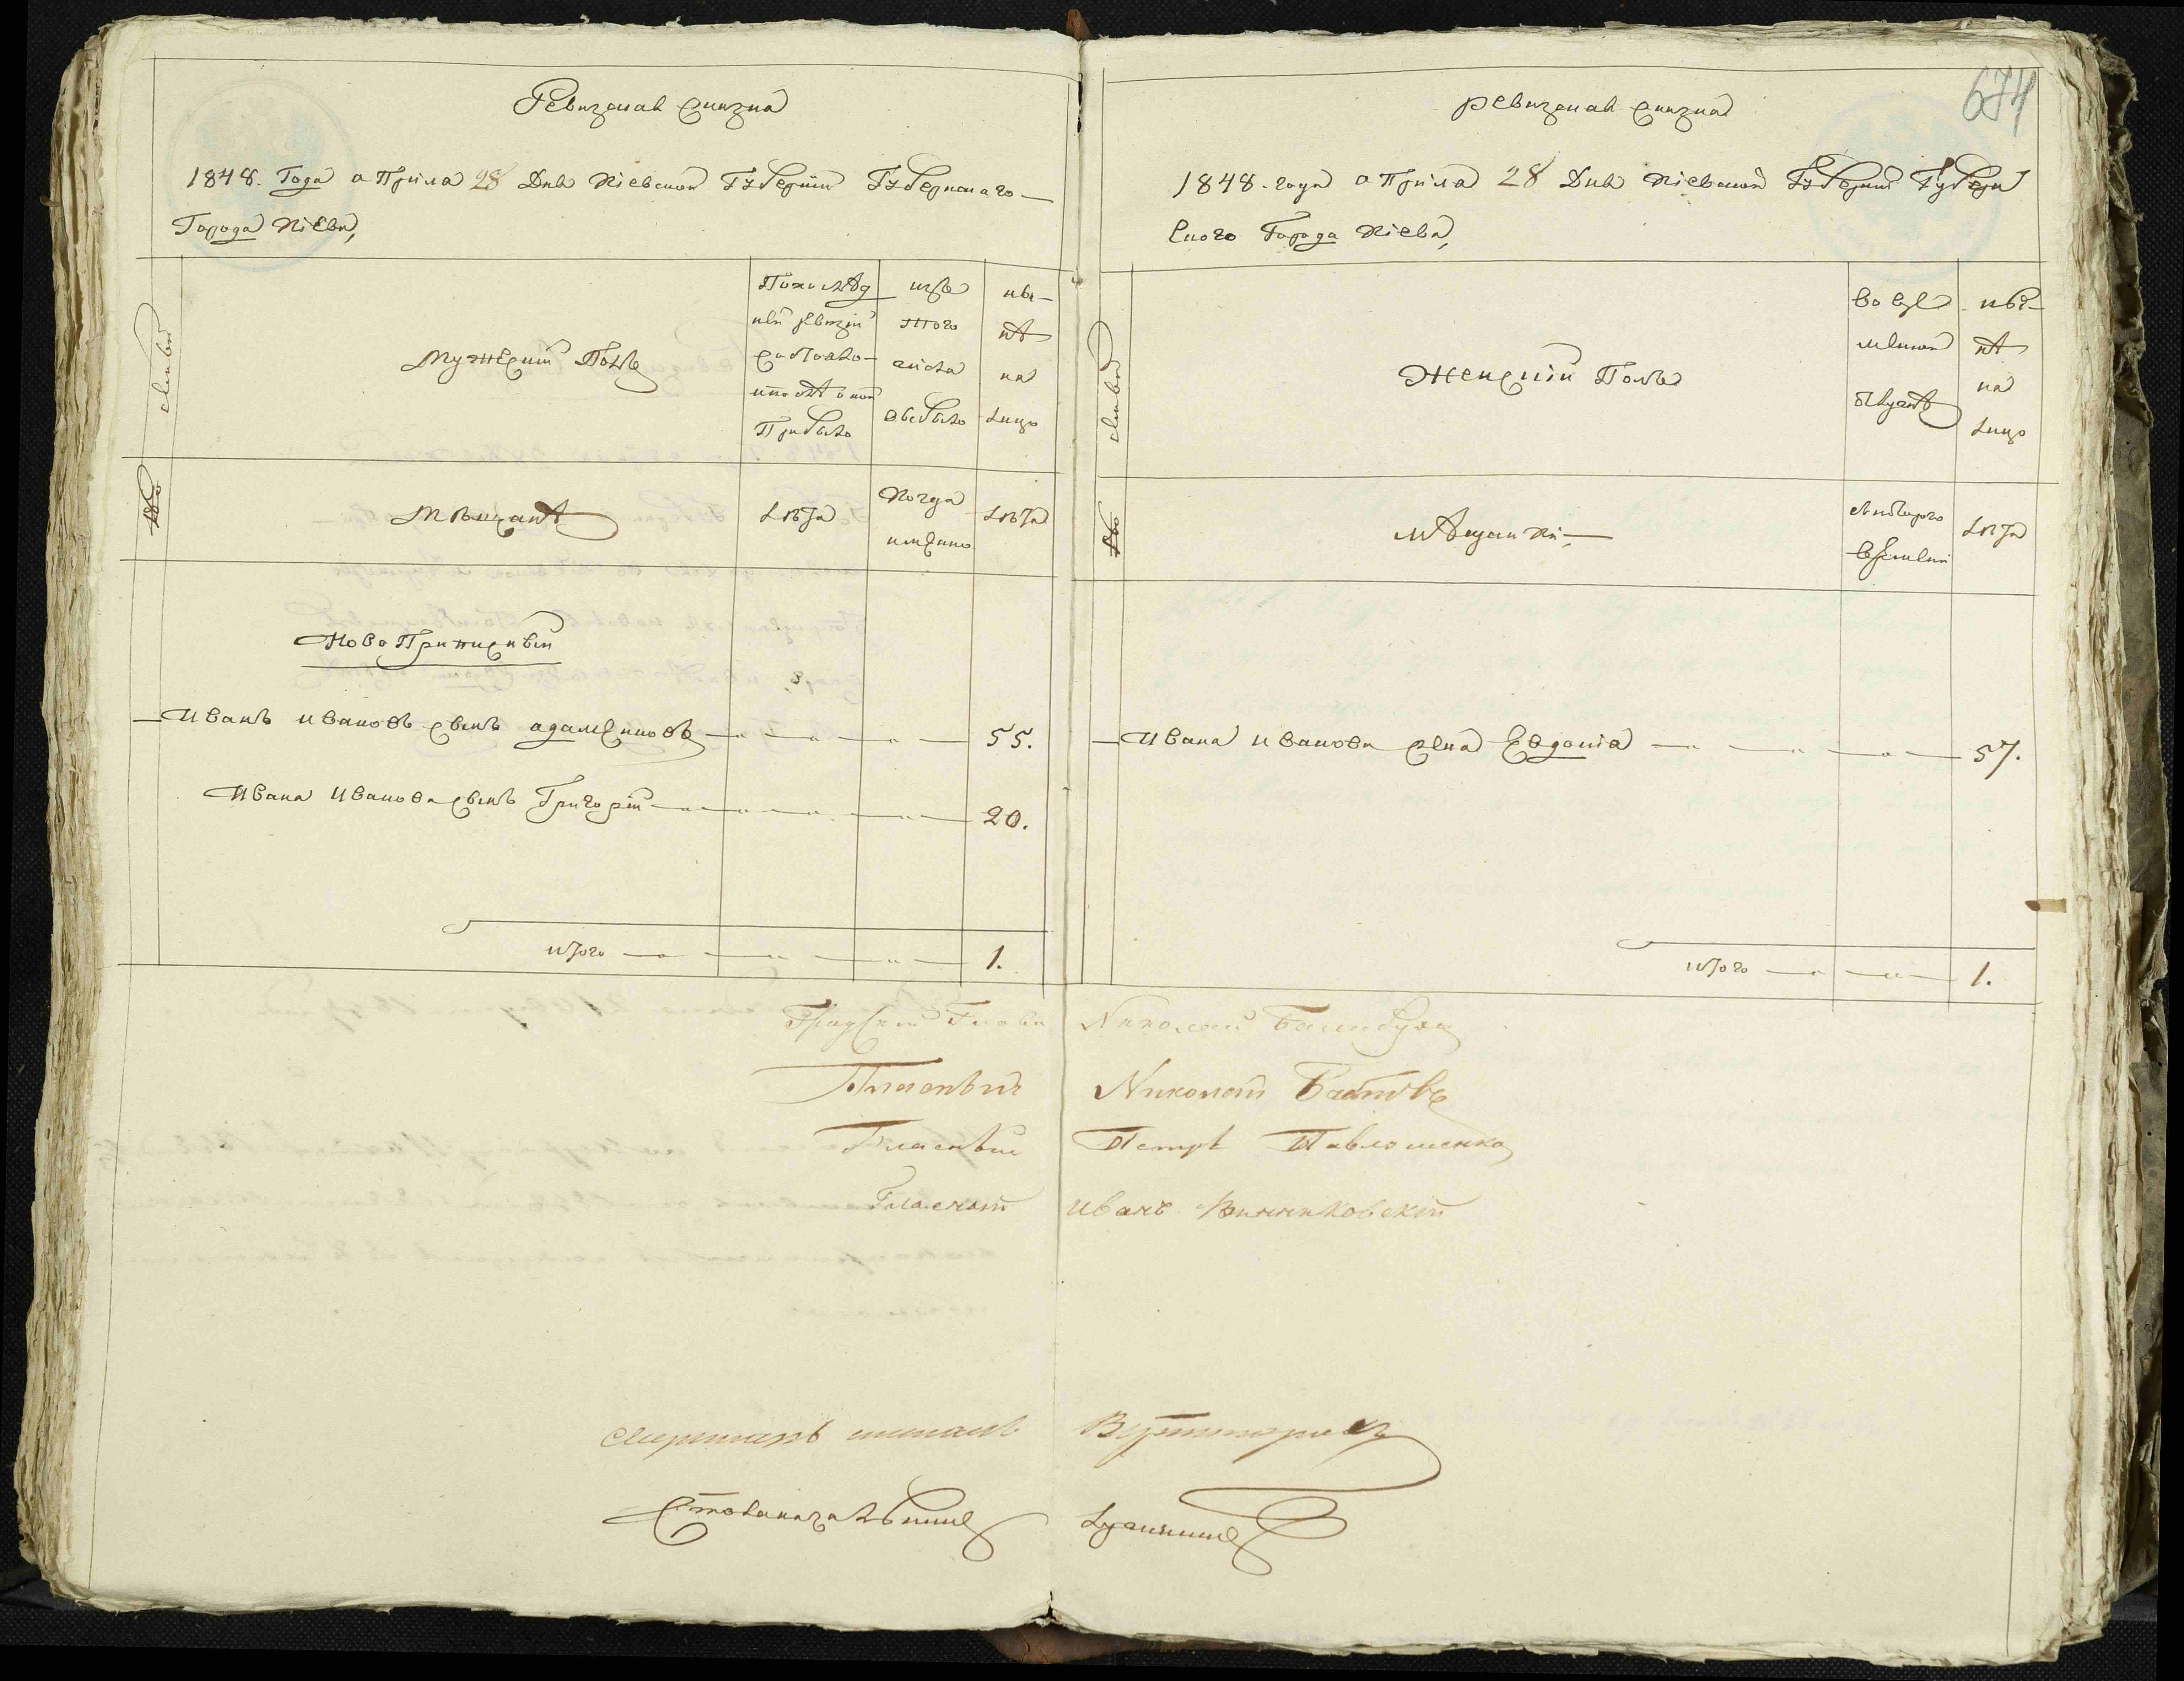 Ревизская сказка
1848. Года априла 28 дня Кіевской Губерніи Губернскаго
Города Кіева,
семьи
Мужескій Полъ
По послѣд
ней ревизіи
состояло
и после оной
прибыло
изъ
того
числа
выбыло
ны-
нѣ
на
лицо
№
Мѣщанъ
Лѣта
Когда
именно
Лѣта
Ново Приписный
Иванъ Ивановъ сынъ Адаменковъ 55.
Ивана Иванова сынъ Григорій 20.
итого 1.
674
ревизская сказка
1848. года априла 28 дня Кіевской Губерніи Губерн
скаго Города Кіева,
семьи
Женскій Полъ
во вре
менной
отлучкѣ
ны-
нѣ
на
лицо
№
мѣщанки
съ котораго
времени
Лѣта
Ивана Иванова жена Евдокія 57.
итого 1.
Градскій Глава Николай Балабуха
Гласный Николай Бабтовъ
Гласный Петръ Павлошенко
Гласный Иванъ Винниковскій
Секретарь
Столоначальникъ